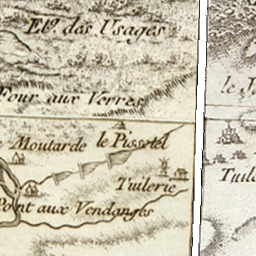 Etg. des Usages
Four aux Verres
le J
Moutarde le Pissotel
Tuilerie
Tuile
Pont aux Vendanges